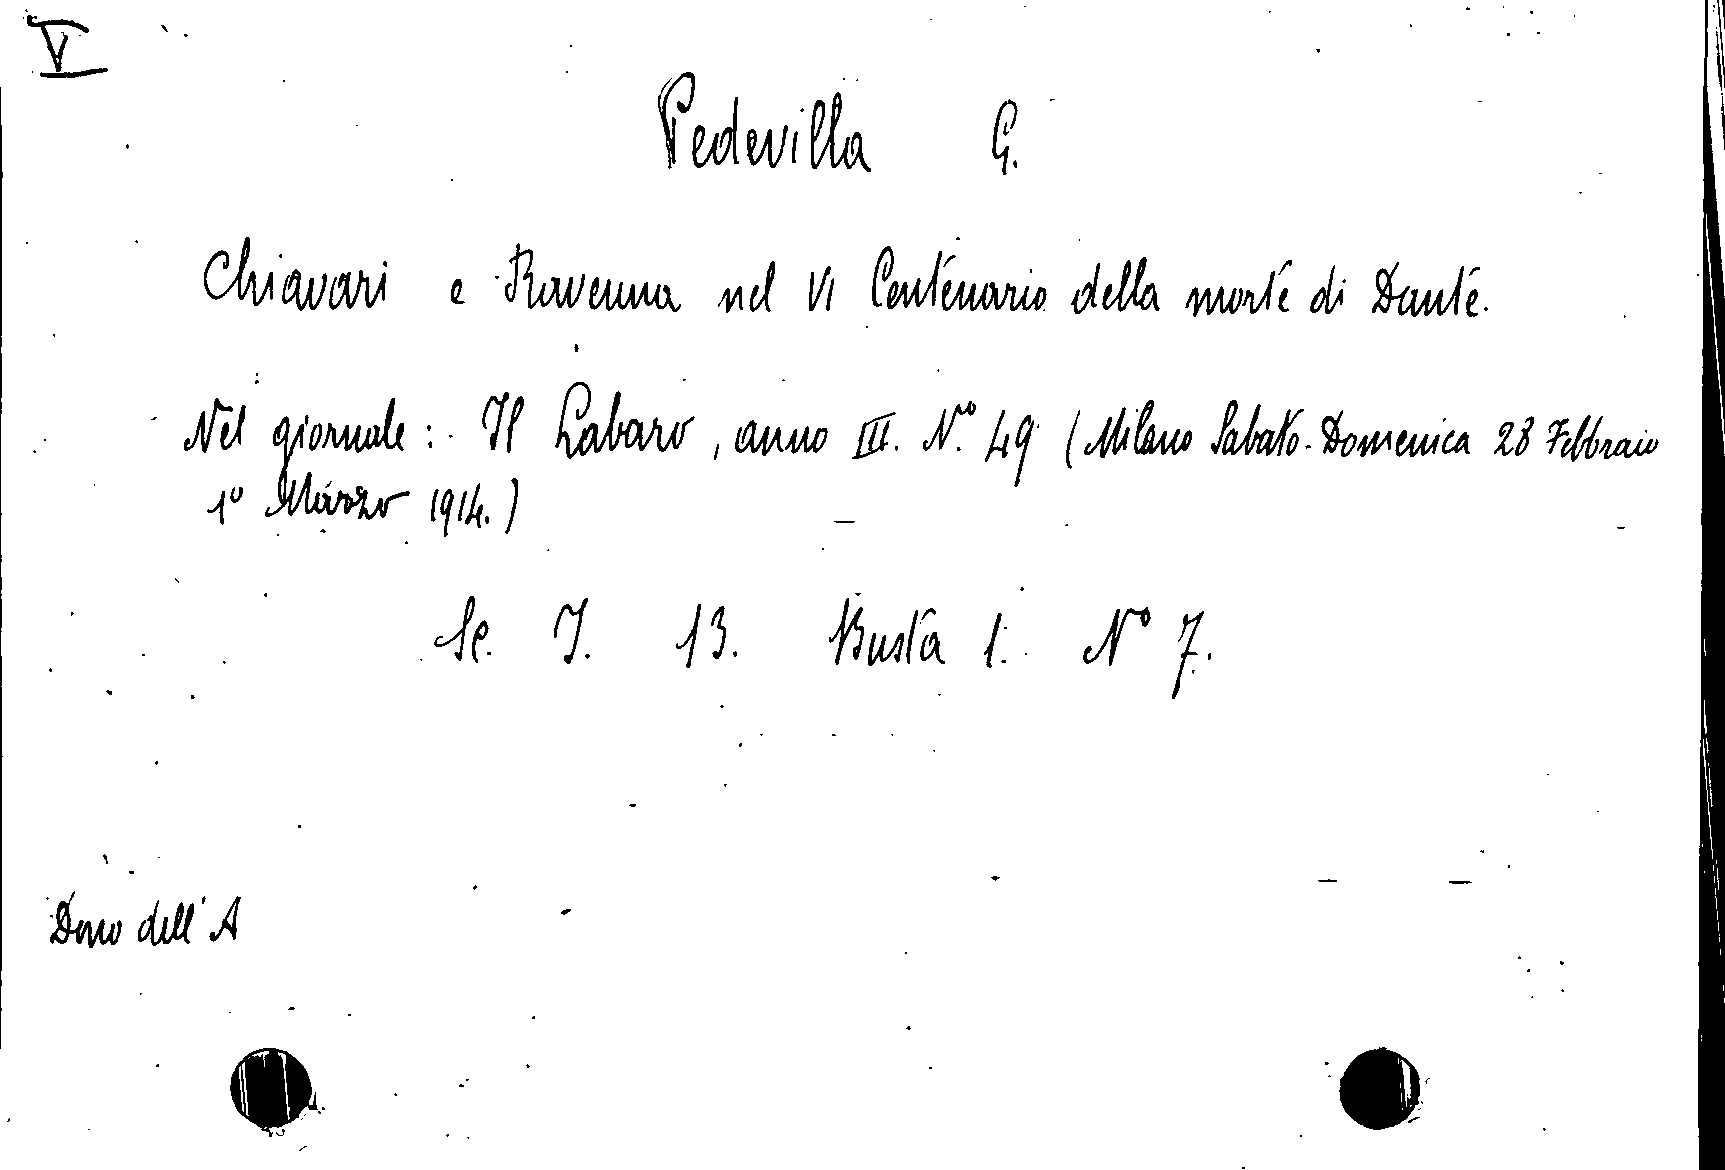 V
Pedevilla G.
Chiavari e Ravenna nel VI Centenario della morte di Dante.
Nel giornale: Il Labaro, anno III. N.º 49 (Milano Sabato-Domenica 28 Febbraio
1º Marzo 1914.)
Sc. I. 13. Busta 1. Nº 7.
Dono dell'A